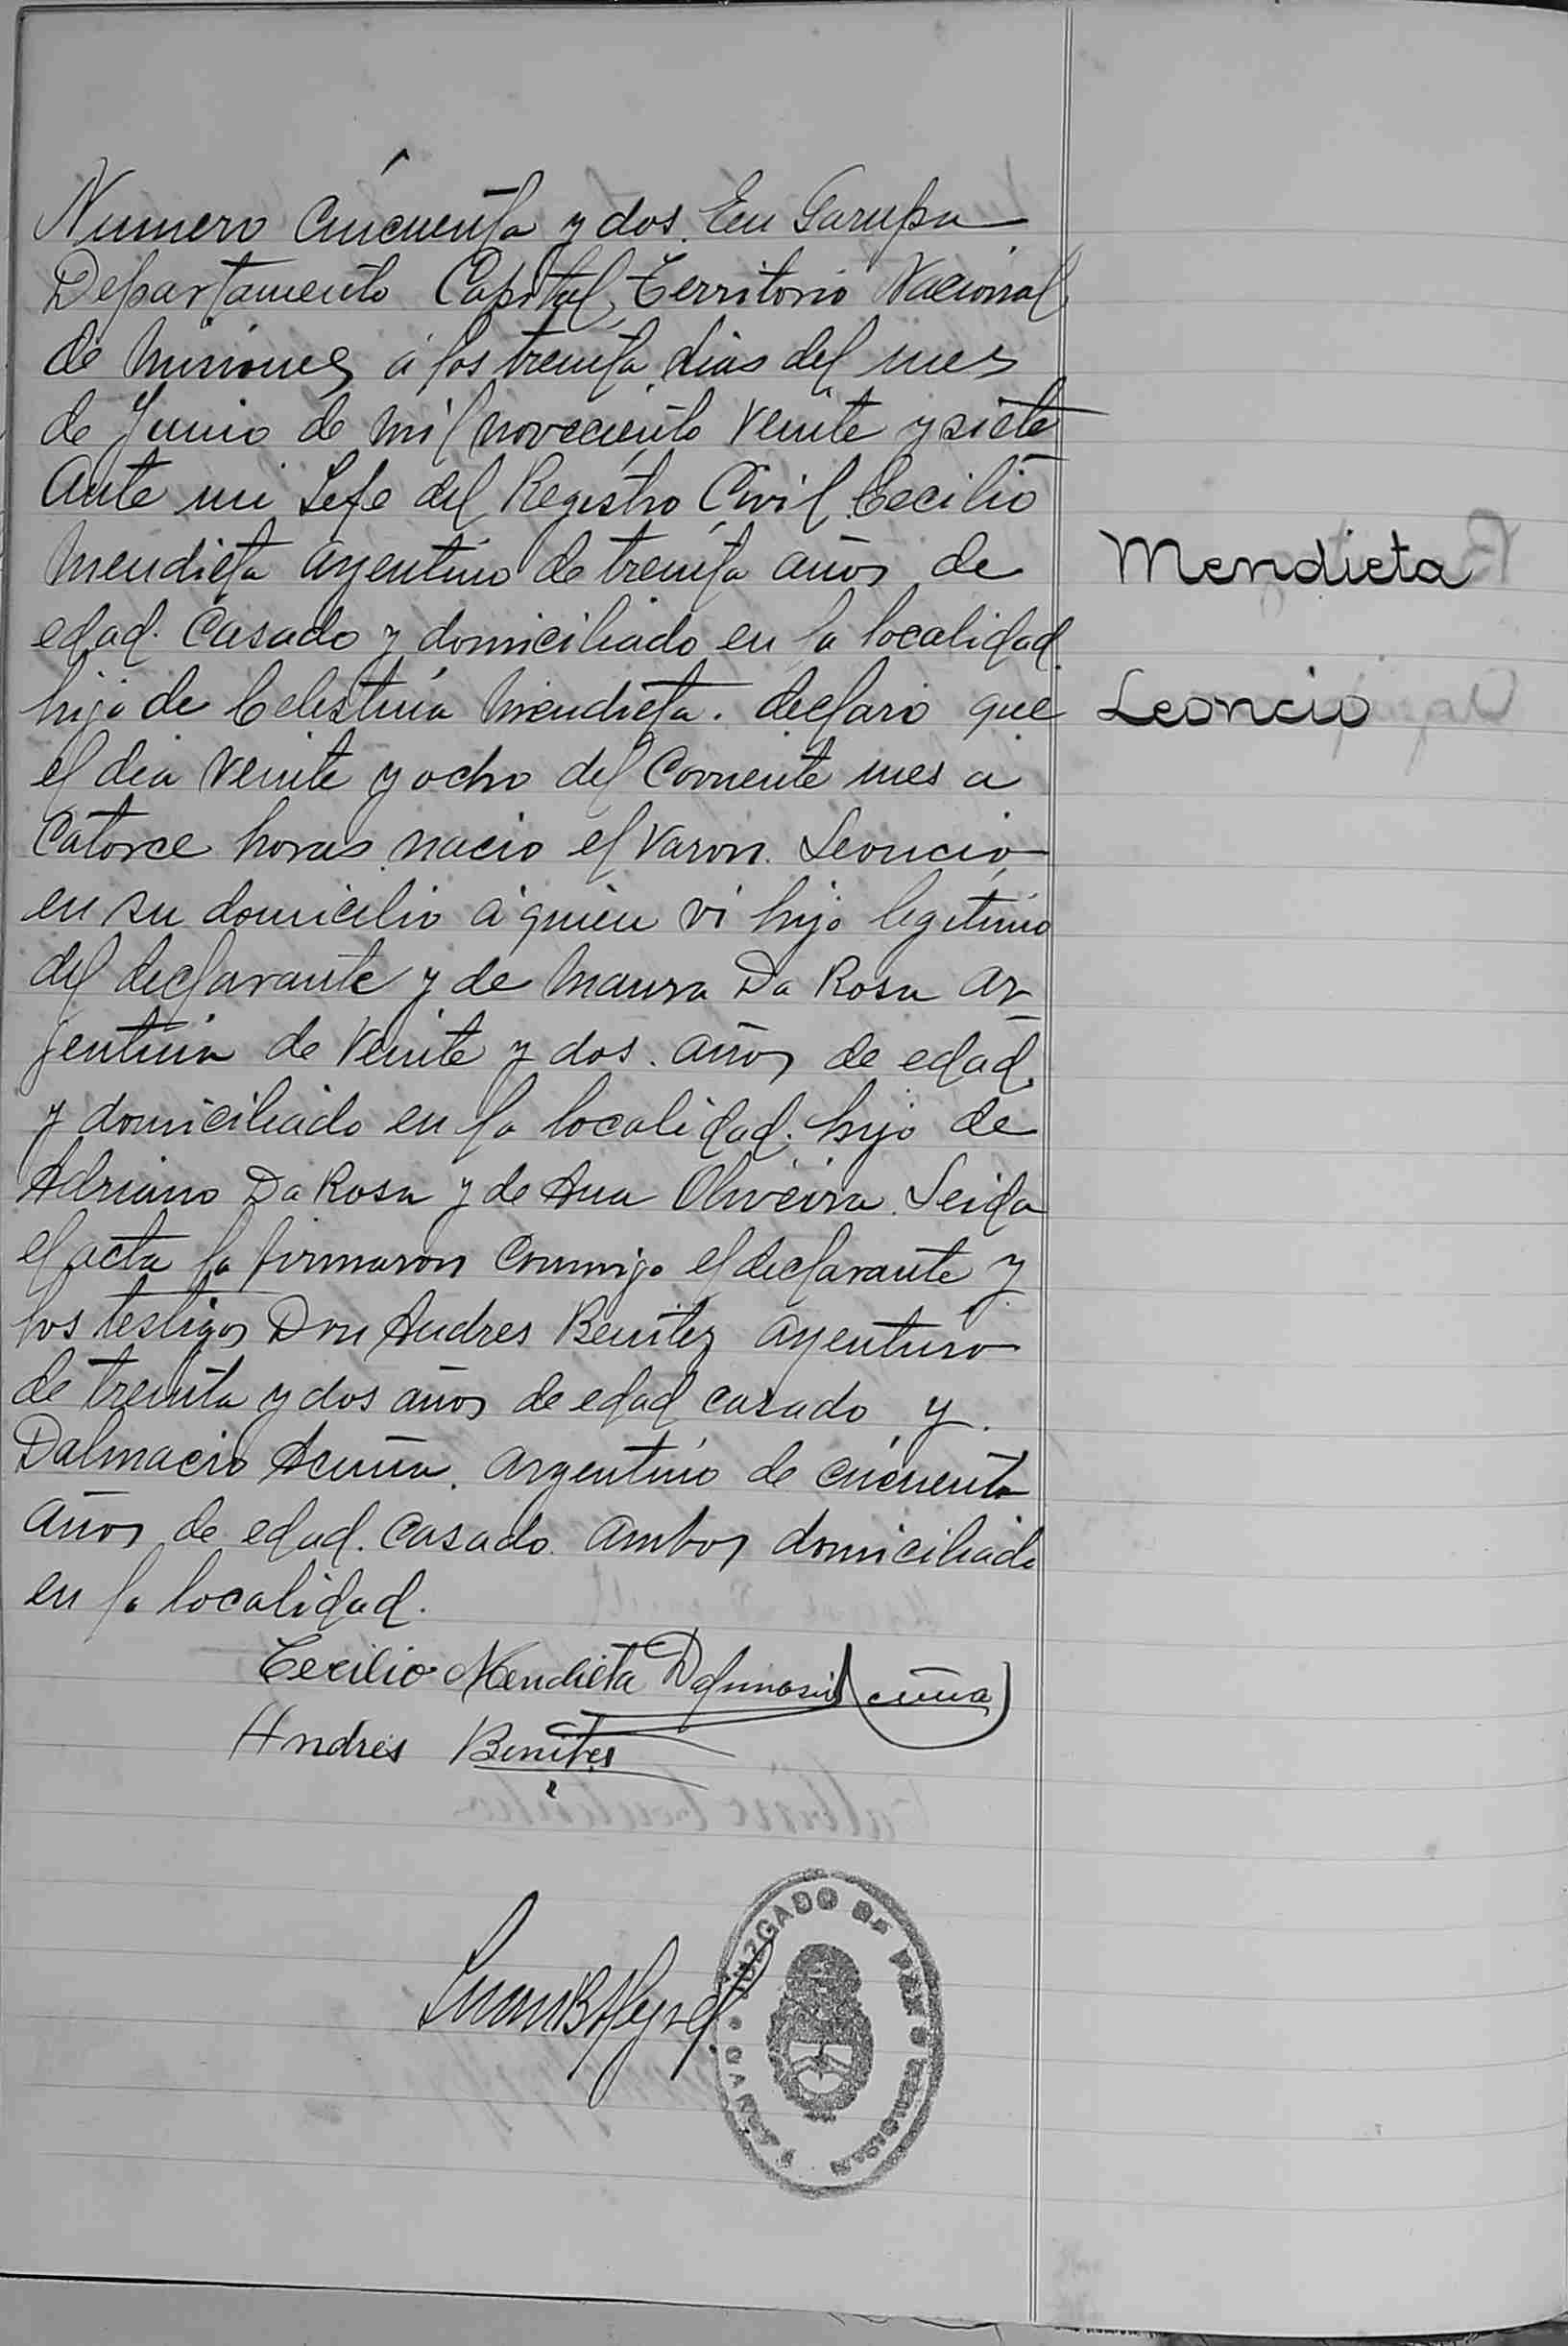 Numero Cincuenta y dos. En Garupa
Departamento Capital, Territorio Nacional
de Misiones á los treinta dias del mes
de Junio de mil novecientos veinte y siete
Ante mi Jefe del Registro Civil Cecilio
Mendieta Argentino de treinta años de
edad. Casado y domiciliado en la localidad
hijo de Celestina Mendieta. declaro que
el dia veinte y ocho del corriente mes a
catorce horas nacio el varon Leoncio
en su domicilio a quien vi hijo legitimo
del declarante y de Maura Da Rosa Ar
gentina de veinte y dos años de edad
y domiciliado en la localidad. hijo de
Adriano Da Rosa y de Ana Oliveira. Leida
el acta la firmaron conmigo el declarante y
los testigos Don Andres Benitez argentino
de treinta y dos años de edad casado y
Dalmacio Acuña. argentino de cincuenta
años de edad. casado. ambos domiciliado
en la localidad.
Mendieta
Leoncio
Cecilio Mendieta Dalmasio Acuña
Andrés Benites
JUZGADO DE PAZ